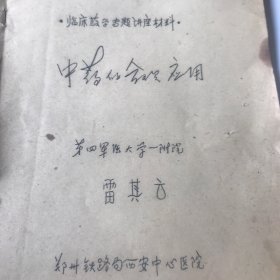 ·临床教学专题讲座材料·
中药的合理应用
第四军医大学一附院
雷其云
郑州铁路局西安中心医院